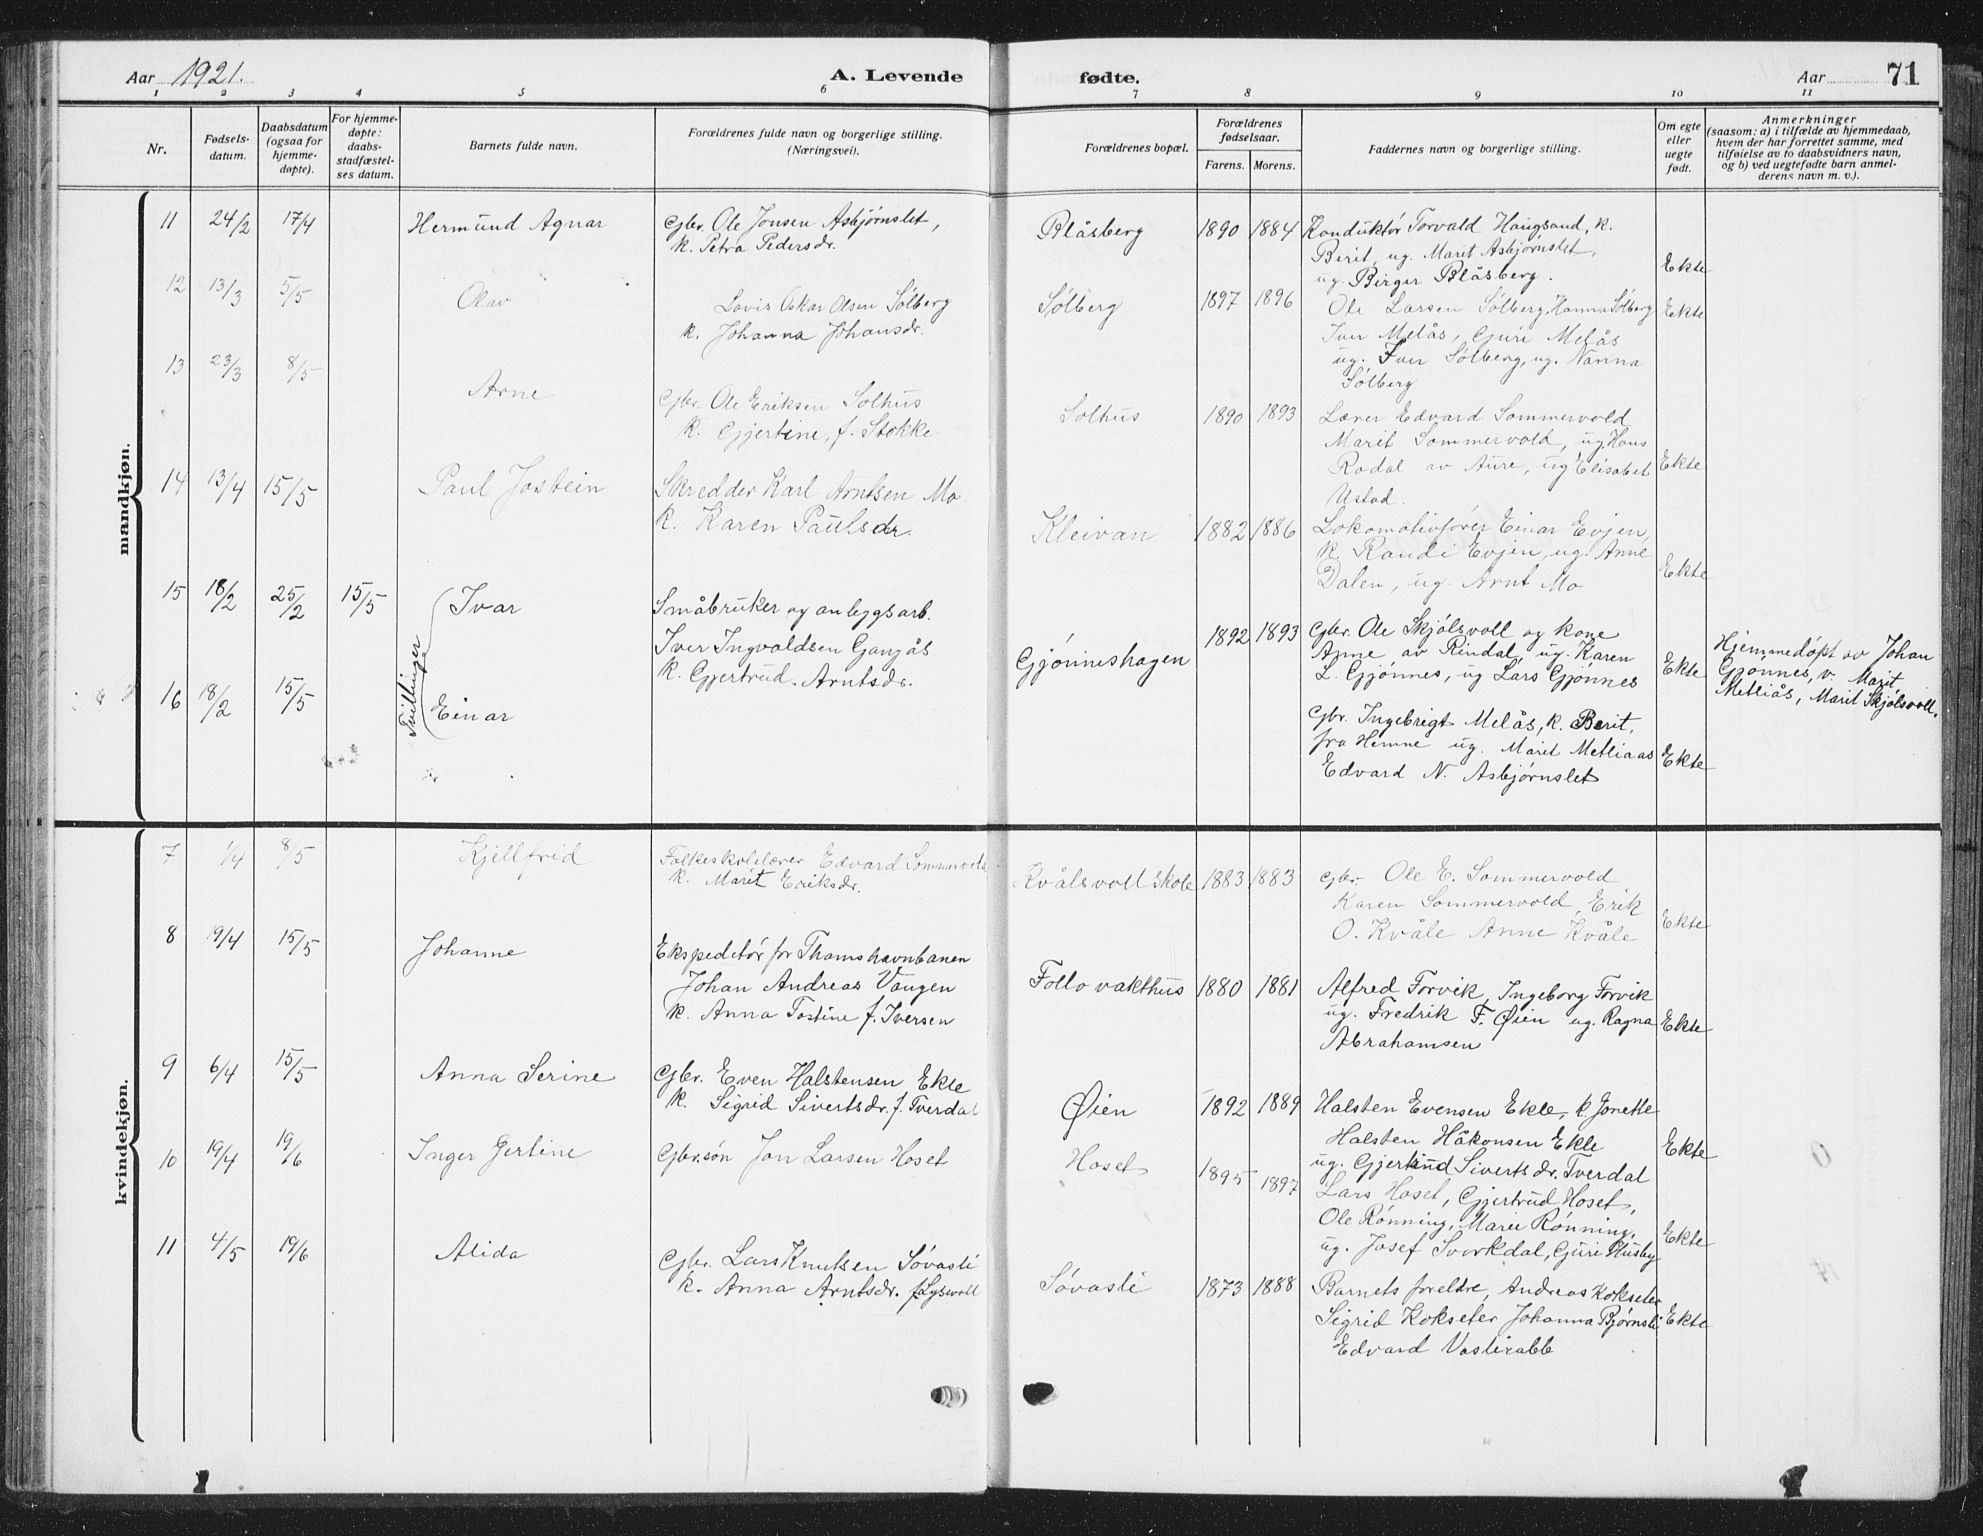 Aar 1921.
A. Levende
fødte.
Aar 71
1 2 3 4 5 6 7 8 9 10 11
Nr.
Fødsels-
datum.
Daabsdatum
(ogsaa for
hjemme-
døpte).
For hjemme-
døpte:
daabs-
stadfæstel-
ses datum.
Barnets fulde navn.
Forældrenes fulde navn og borgerlige stilling.
(Næringsvei).
Forældrenes bopæl.
Forældrenes
fødselsaar.
Farens. Morens.
Faddernes navn og borgerlige stilling.
Om egte
eller
uegte
født.
Anmerkninger
(saasom: a) i tilfælde av hjemmedaab,
hvem der har forrettet samme, med
tilføielse av to daabsvidners navn,
og b) ved uegtefødte barn anmel-
derens navn m. v.).
mandkjøn.
11 24/2 17/4 Hermund Agnar
Gbr. Ole Jonsen Asbjørnslet,
k. Petra Pedersdr.
Blåsberg 1890 1884
Konduktør Torvald Haugsand, k.
Berit, ug. Marit Asbjørnslet,
ug. Birger Blåsberg.
Ekte
12 13/3 5/5 Olav
Lovis Oskar Olsen Sølberg
k. Johanna Johansdr.
Sølberg 1897 1896
Ole Larsen Sølberg, Hanna Sølberg
Iver Melås, Guri Melås
ug. Iver Sølberg, ug. Nanna
Sølberg
Ekte
13 23/3 8/5 Arne
Gbr. Ole Eriksen Solhus
k. Gjertine, f. Stokke
Solhus 1890 1893
Lærer Edvard Sommervold
Marit Sommervold, ug Hans
Rodal av Aure, ug Elisabet
Ustad.
Ekte
14 13/4 15/5 Paul Jostein
Skredder Karl Arntsen Mo
k. Karen Paulsdr.
Kleivan 1882 1886
Lokomotivfører Einar Evjen,
k. Randi Evjen, ug. Anne
Dalen, ug. Arnt Mo
Ekte
15 18/2 25/2 15/5 Ivar
Tvillinger
Småbruker og anleggsarb.
Iver Ingvaldsen Ganjås
k. Gjertrud. Arntsdr.
Gjønneshagen 1892 1893
Gbr. Ole Skjølsvoll og kone
Anne av Rindal, ug. Karen
L. Gjønnes, ug Lars Gjønnes
Ekte
Hjemmedøpt av Johan
Gjønnes, v. Marit
Metliås, Marit Skjølsvoll.
16 18/2 15/5 Einar
Gbr. Ingebrigt Melås, k. Berit,
fra Hemne ug. Marit Metliaas
Edvard N. Asbjørnslet
Ekte
kvindekjøn.
7 1/4 8/5 Kjellfrid
Folkeskolelærer Edvard Sommervold
k. Marit Eriksdr.
Kvålsvoll skole 1883 1883
Gbr. Ole E. Sommervold
Karen Sommervold, Erik
O. Kvåle Anne Kvåle
Ekte
8 19/4 15/5 Johanne
Ekspeditør for Thamshavnbanen
Johan Andreas Vangen
k. Anna Tostine f. Iversen
Follo vakthus 1880 1881
Alfred Forvik, Ingeborg Forvik
ug. Fredrik F. Øien ug. Ragna
Abrahamsen
Ekte
9 6/4 15/5 Anna Serine
Gbr. Even Halstensen Ekle
k. Sigrid Sivertsdr. f. Tverdal
Øien 1892 1889
Halsten Evensen Ekle, k. Jonette
Halsten Håkonsen Ekle
ug. Gjertrud Sivertsdr. Tverdal
Ekte
10 19/4 19/6 Inger Gertine
Gbr.søn Jon Larsen Hoset
Hoset 1895 1897
Lars Hoset, Gjertrud Hoset,
Ole Rønning, Marie Rønning,
ug. Josef Svorkdal, Guri Husby
Ekte
11 4/5 19/6 Alida
Gbr. Lars Knutsen Søvasli
k. Anna Arntsdr. f. Lysvoll
Søvasli 1873 1888
Barnets foreldre, Andreas Kokseter
Sigrid Kokseter Johanna Bjørnsli
Edvard Vaslirabb
Ekte